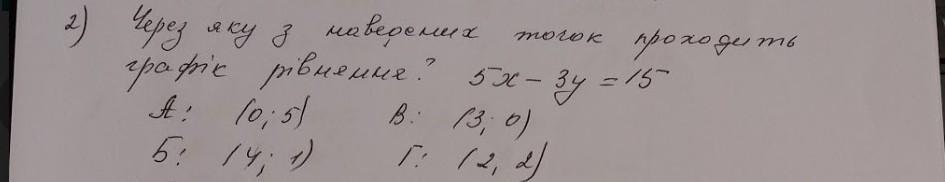 2) Через яку з наведених точок проходить
графік рівняння? 5x - 3y = 15
А: (0; 5) В: (3; 0)
Б: (4; 1) Г: (2, 2)